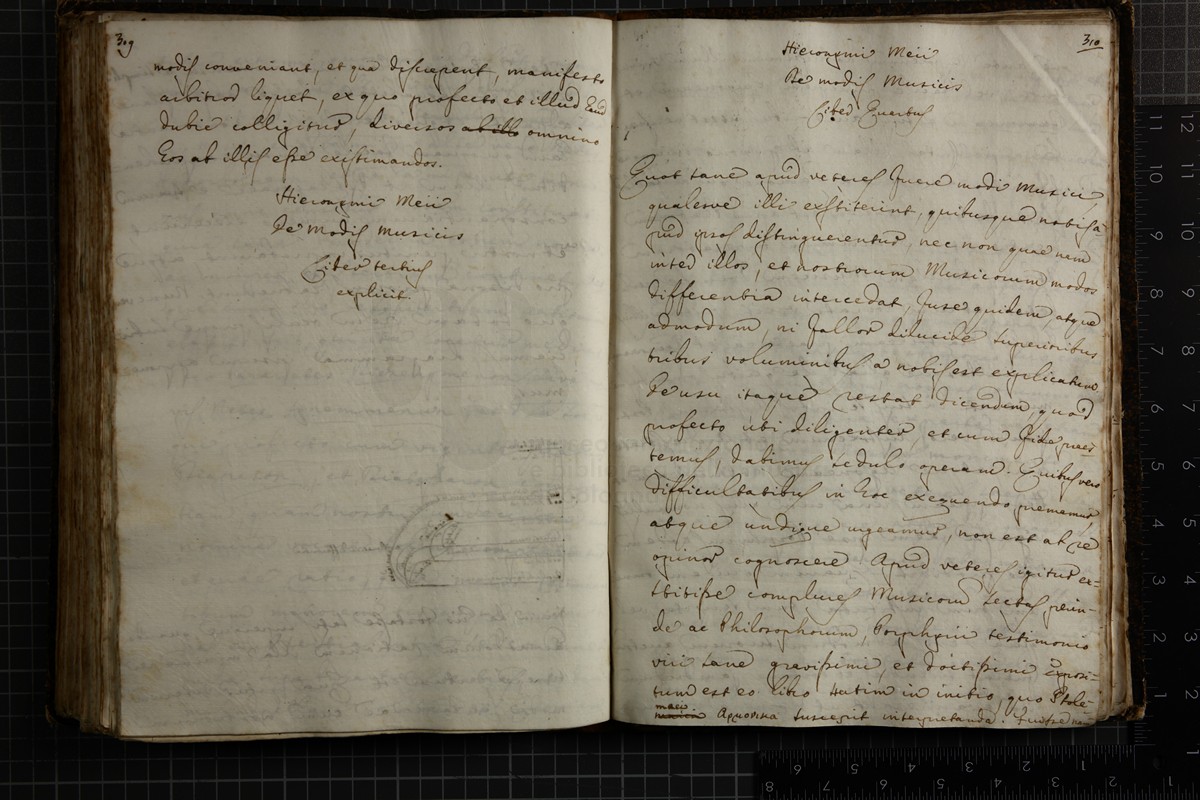 309
modis conveniant, et qua discrepent, manifesto
arbitror liquet, ex quo profecto et illud haud
dubie colligitur, diversos ab illis omnino
eos ab illis esse existimandos.
Hieronymi Meii
De modis musicis
Liber tertius
explicit.
310
Hieronymi Meii
De modis Musicis
Liber Quartus
Quot sane apud veteres fuere modi musici
qualesve illi exstiterint, quibusque notis a-
pud ipsos distinguerentur, nec non quae nam
inter illos, et nostrorum Musicorum modos
differentia intercedat, fuse quidem, atque
admodum, ni fallor dilucide superioribus
tribus voluminibus a nobis est explicatum
De usu itaque restat dicendum, quod
profecto ubi diligenter, et cum fide praes
temus, dabimus sedulo operam. Quibus vero
difficultatibus in hoc exequendo prememur,
atque undique urgeamur, non est ab re
opinor cognoscere. Apud veteres igitur ex-
titisse complures Musicorum sectas perin-
de ac Philosophorum, Porphyrii testimonio
viri sane gravissimi, et doctissimi exposi-
tum est eo libro statim in initio, quo Ptole-
maei Αρμονικα suscepit interpretanda.